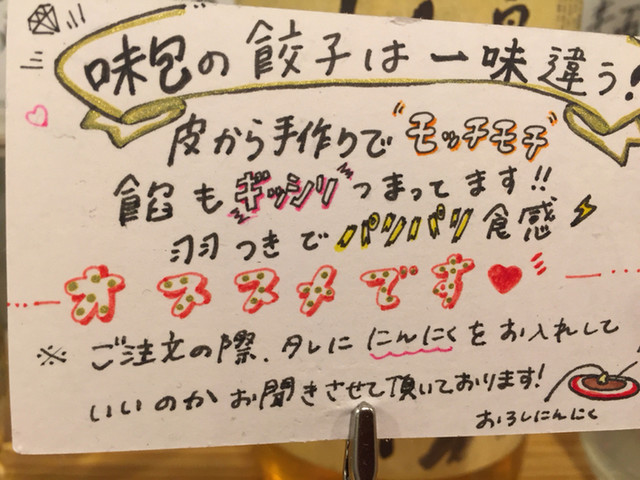 味包の餃子は一味違う!
皮から手作りで"モッチモチ"
餡も"ギッシリ"つまってます!!
羽つきでパリパリ食感
オススメです
※ご注文の際、タレににんにくをお入れして
いいのかお聞きさせて頂いております!
おろしにんにく